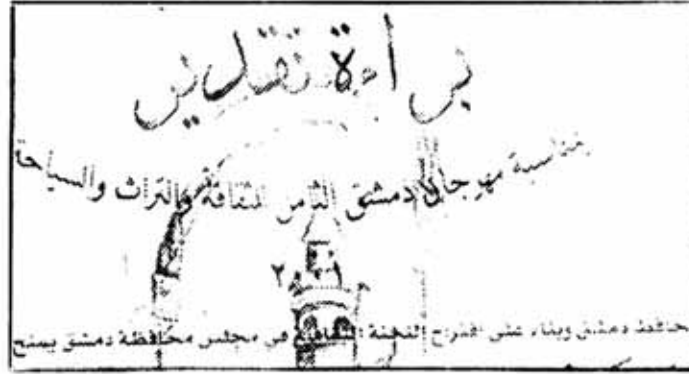 براءة تقدير
بمناسبة مهرجان دمشق الثامن للثقافة والتراث والسياحة
محافظ دمشق وبناء على اقتراح اللجنة الثقافية في مجلس محافظة دمشق يمنح